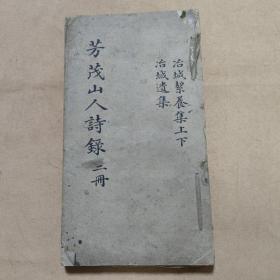 冶城絜養集上下
冶城遺集
芳茂山人詩錄 二冊